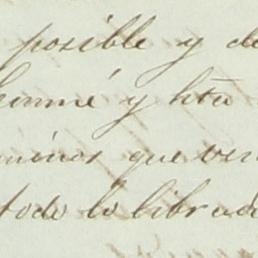 posible y de
y hta
minos que ven
todo lo librado